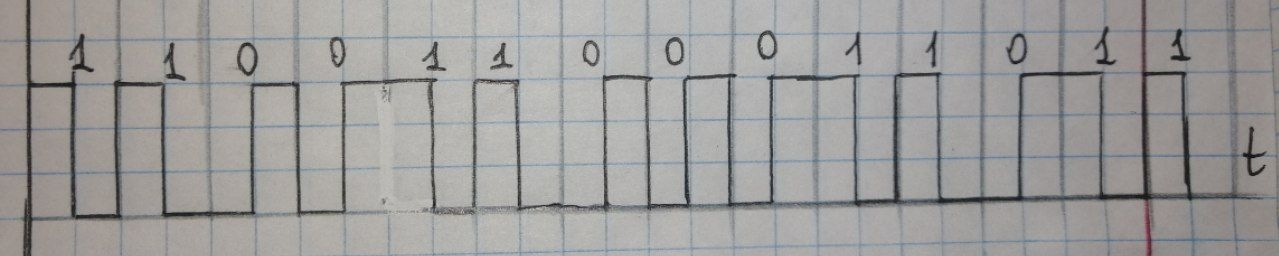 1 1 0 0 1 1 0 0 0 1 1 0 1 1
t